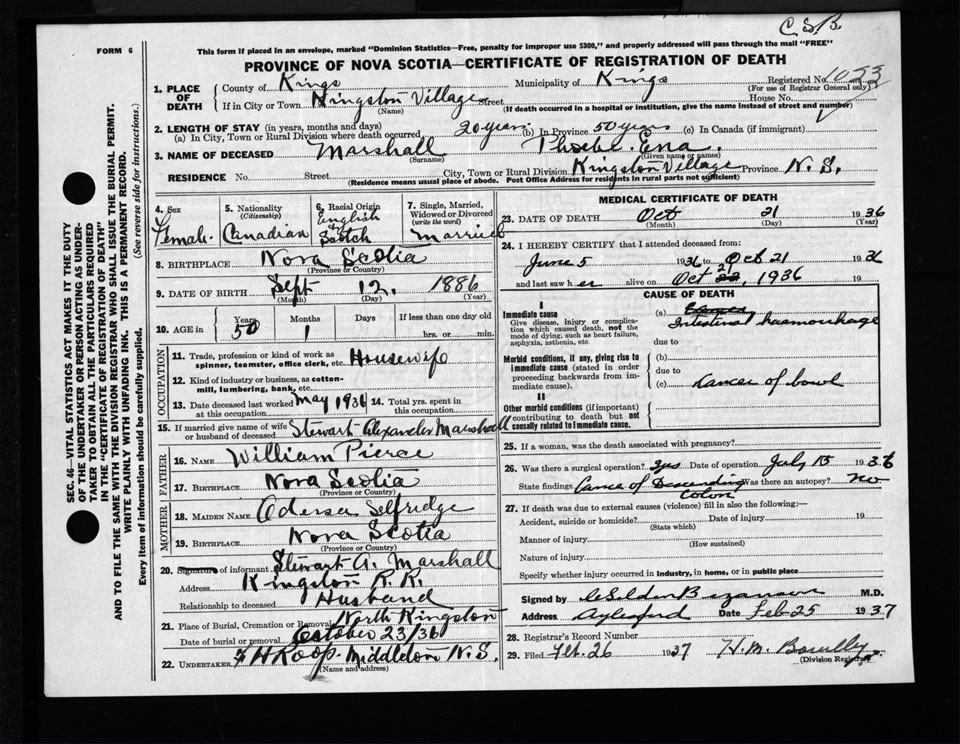 C.S.B.
FORM 6
This form if placed in an envelope, marked "Dominion Statistics—Free, penalty for improper use $300," and properly addressed will pass through the mail "FREE"
PROVINCE OF NOVA SCOTIA—CERTIFICATE OF REGISTRATION OF DEATH
1. PLACE OF DEATH
County of Kings Municipality of Kings Registered No. 1033
(For use of Registrar General only)
If in City or Town Kingston Village Street House No.
(Name) (If death occurred in a hospital or institution, give the name instead of street and number)
2. LENGTH OF STAY (in years, months and days)
(a) In City, Town or Rural Division where death occurred 20 years (b) In Province 50 years (c) In Canada (if immigrant)
3. NAME OF DECEASED Marshall Phoebe Ena.
(Surname) (Given name or names)
RESIDENCE No. Street City, Town or Rural Division Kingston Village Province N.S.
(Residence means usual place of abode. Post Office Address for residents in rural parts not sufficient)
4. Sex Female
5. Nationality (Citizenship) Canadian
6. Racial Origin English Scotch
7. Single, Married, Widowed or Divorced (write the word) Married
8. BIRTHPLACE Nova Scotia
(Province or Country)
9. DATE OF BIRTH Sept 12, 1886
(Month) (Day) (Year)
10. AGE in Years 50 Months 1 Days If less than one day old hrs. or min.
OCCUPATION
11. Trade, profession or kind of work as spinner, teamster, office clerk, etc. Housewife
12. Kind of industry or business, as cotton-mill, lumbering, bank, etc.
13. Date deceased last worked at this occupation May 1936 14. Total yrs. spent in this occupation
15. If married give name of wife or husband of deceased Stewart Alexander Marshall
FATHER
16. NAME William Pierce
17. BIRTHPLACE Nova Scotia
(Province or Country)
MOTHER
18. MAIDEN NAME Odersa Selfridge
19. BIRTHPLACE Nova Scotia
(Province or Country)
20. Signature of informant Stewart A. Marshall
Address Kingston R.R.
Relationship to deceased Husband
21. Place of Burial, Cremation or Removal North Kingston
Date of burial or removal October 23/36
22. UNDERTAKER F H Roop Middleton N.S.
(Name and address)
MEDICAL CERTIFICATE OF DEATH
23. DATE OF DEATH Oct 21 1936
(Month) (Day) (Year)
24. I HEREBY CERTIFY that I attended deceased from:
June 5 1936 to Oct 21 1936
and last saw her alive on Oct 21, 1936 19
CAUSE OF DEATH
I
Immediate cause
Give disease, injury or complication which caused death, not the mode of dying, such as heart failure, asphyxia, asthenia, etc.
(a) Intestinal haemorrhage
due to
Morbid conditions, if any, giving rise to immediate cause (stated in order proceeding backwards from immediate cause).
(b)
due to
(c) Cancer of bowl
II
Other morbid conditions (if important) contributing to death but not causally related to immediate cause.
25. If a woman, was the death associated with pregnancy?
26. Was there a surgical operation? yes Date of operation July 15 1936
State findings Cancer of Descending Colon Was there an autopsy? no
27. If death was due to external causes (violence) fill in also the following:—
Accident, suicide or homicide? Date of injury 19
(State which)
Manner of injury
(How sustained)
Nature of injury
Specify whether injury occurred in industry, in home, or in public place
Signed by M.D.
Address Aylesford Date Feb 25 1937
28. Registrar's Record Number
29. Filed Feb. 26 1937 H.M.
(Division Registrar)
SEC. 46—VITAL STATISTICS ACT MAKES IT THE DUTY OF THE UNDERTAKER OR PERSON ACTING AS UNDERTAKER TO OBTAIN ALL THE PARTICULARS REQUIRED IN THE "CERTIFICATE OF REGISTRATION OF DEATH" AND TO FILE THE SAME WITH THE DIVISION REGISTRAR WHO SHALL ISSUE THE BURIAL PERMIT.
WRITE PLAINLY WITH UNFADING INK. THIS IS A PERMANENT RECORD.
Every item of information should be carefully supplied. (See reverse side for instructions.)